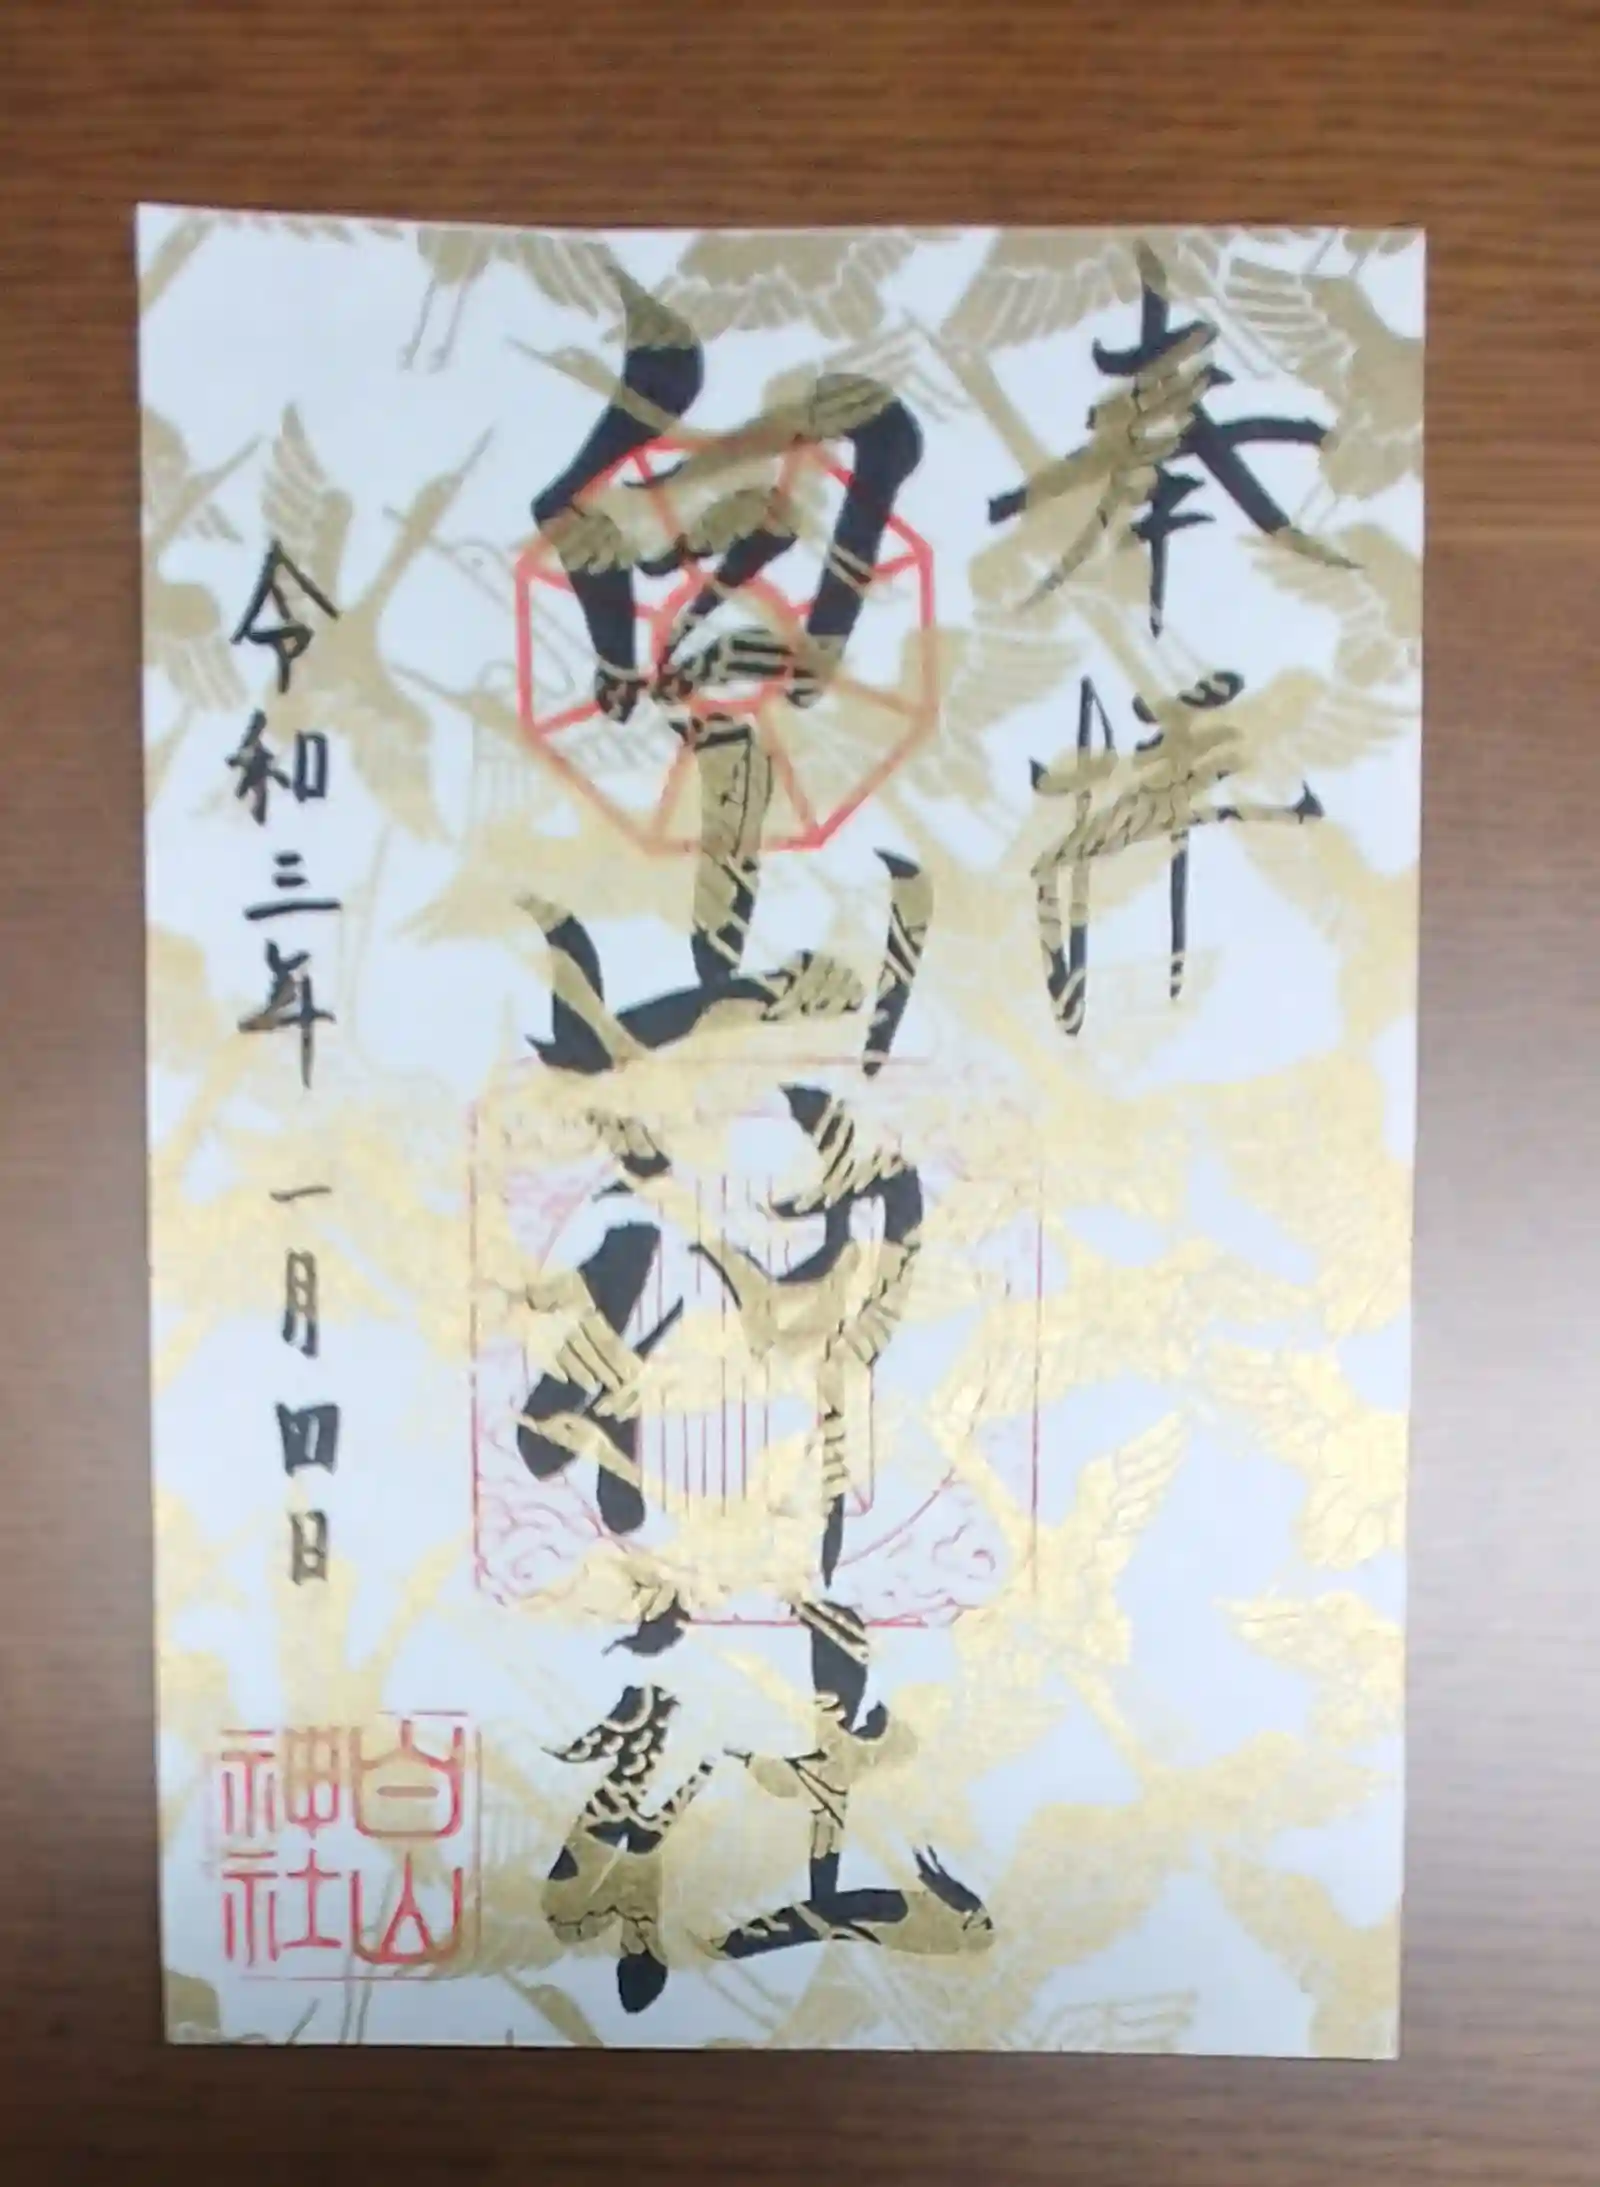 奉拝
白山神社
令和三年一月四日
白山
神社